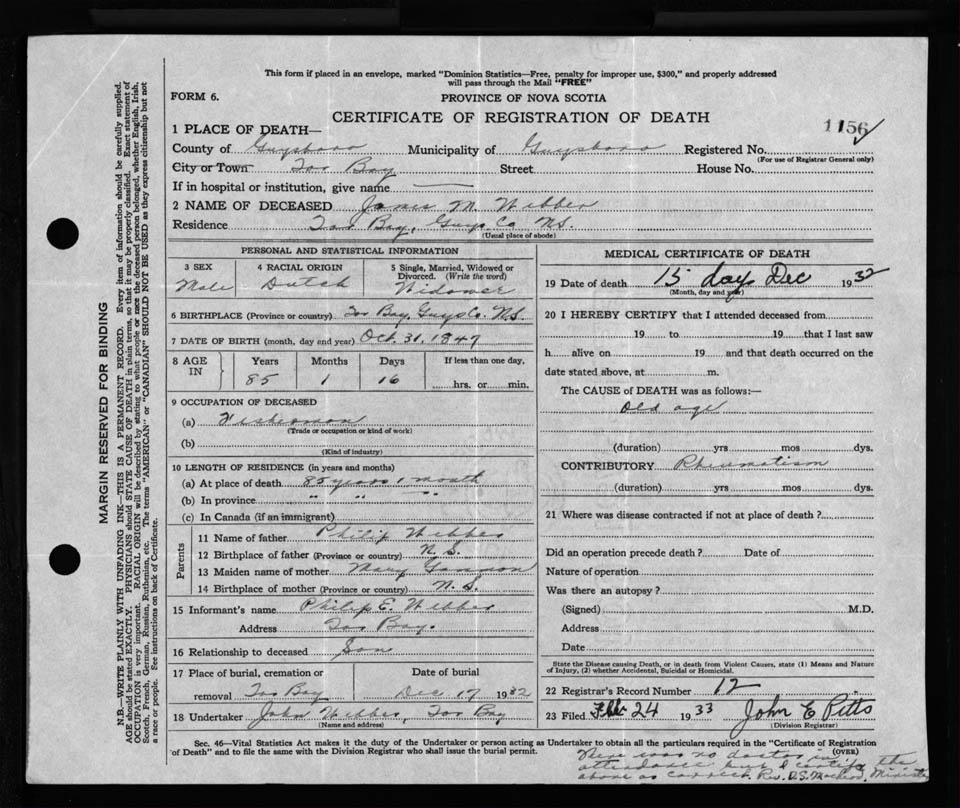 This form if placed in an envelope, marked "Dominion Statistics—Free, penalty for improper use, $300," and properly addressed
will pass through the Mail "FREE"
FORM 6.
PROVINCE OF NOVA SCOTIA
CERTIFICATE OF REGISTRATION OF DEATH
1156
1 PLACE OF DEATH—
County of Guysboro Municipality of Guysboro Registered No.
(For use of Registrar General only)
City or Town Tor Bay Street House No.
If in hospital or institution, give name —
2 NAME OF DECEASED James M. Webber
Residence Tor Bay, Guys Co N.S.
(Usual place of abode)
PERSONAL AND STATISTICAL INFORMATION
3 SEX Male
4 RACIAL ORIGIN Dutch
5 Single, Married, Widowed or Divorced. (Write the word) Widower
6 BIRTHPLACE (Province or country) Tor Bay, Guys Co. N.S.
7 DATE OF BIRTH (month, day and year) Oct. 31, 1847
8 AGE IN Years Months Days If less than one day,
85 1 16 hrs. or min.
9 OCCUPATION OF DECEASED
(a) Fisherman
(Trade or occupation or kind of work)
(b)
(Kind of industry)
10 LENGTH OF RESIDENCE (in years and months)
(a) At place of death 85 years 1 month
(b) In province " " "
(c) In Canada (if an immigrant)
Parents
11 Name of father Philip Webber
12 Birthplace of father (Province or country) N. S.
13 Maiden name of mother Mary
14 Birthplace of mother (Province or country) N. S.
15 Informant's name Philip E. Webber
Address Tor Bay.
16 Relationship to deceased Son
17 Place of burial, cremation or removal Tor Bay
Date of burial Dec 17 1932
18 Undertaker John Webber, Tor Bay
(Name and address)
MEDICAL CERTIFICATE OF DEATH
19 Date of death 15 day Dec 1932
(Month, day and year)
20 I HEREBY CERTIFY that I attended deceased from
19 to 19 that I last saw
h alive on 19 and that death occurred on the
date stated above, at m.
The CAUSE of DEATH was as follows:—
Old age
(duration) yrs mos dys.
CONTRIBUTORY Rheumatism
(duration) yrs mos dys.
21 Where was disease contracted if not at place of death?
Did an operation precede death? Date of
Nature of operation
Was there an autopsy?
(Signed) M.D.
Address
Date
State the Disease causing Death, or in death from Violent Causes, state (1) Means and Nature
of Injury, (2) whether Accidental, Suicidal or Homicidal.
22 Registrar's Record Number 12
23 Filed Feb 24 1933 John E Pitts
(Division Registrar)
Sec. 46—Vital Statistics Act makes it the duty of the Undertaker or person acting as Undertaker to obtain all the particulars required in the "Certificate of Registration
of Death" and to file the same with the Division Registrar who shall issue the burial permit. (OVER)
There was no doctor in
attendance but I certify the
above as correct. Rev. D.S. MacLeod, Minister
MARGIN RESERVED FOR BINDING
N.B.—WRITE PLAINLY WITH UNFADING INK—THIS IS A PERMANENT RECORD. Every item of information should be carefully supplied.
AGE should be stated EXACTLY. PHYSICIANS should STATE CAUSE OF DEATH in plain terms, so that it may be properly classified. Exact statement of
OCCUPATION is very important. RACIAL ORIGIN will be described by stating to what people or race the deceased person belonged, whether English, Irish,
Scotch, French, German, Russian, Ruthenian, etc. The terms "AMERICAN" or "CANADIAN" SHOULD NOT BE USED as they express citizenship but not
a race or people. See instructions on back of Certificate.